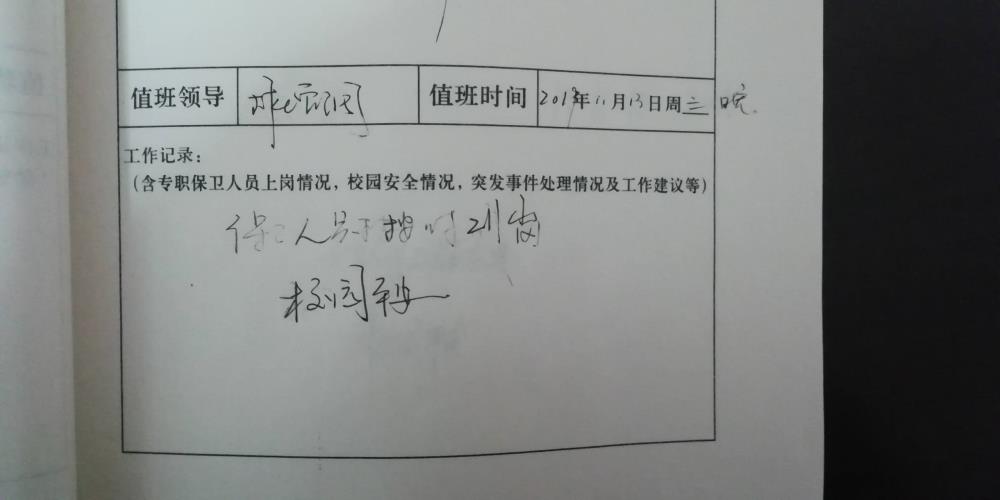 值班领导 值班时间 2019年11月13日周三晚.
工作记录：
（含专职保卫人员上岗情况，校园安全情况，突发事件处理情况及工作建议等）
保卫人员按时到岗
校园平安